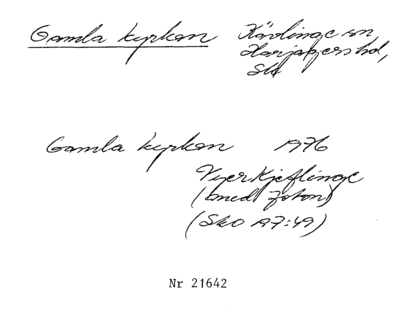 Gamla kyrkan Kävlinge sn,
Harjagers hd,
Sk
Gamla kyrkan 1976
Kjeflinge
(med foton)
(Sko 197:49)
Nr 21642